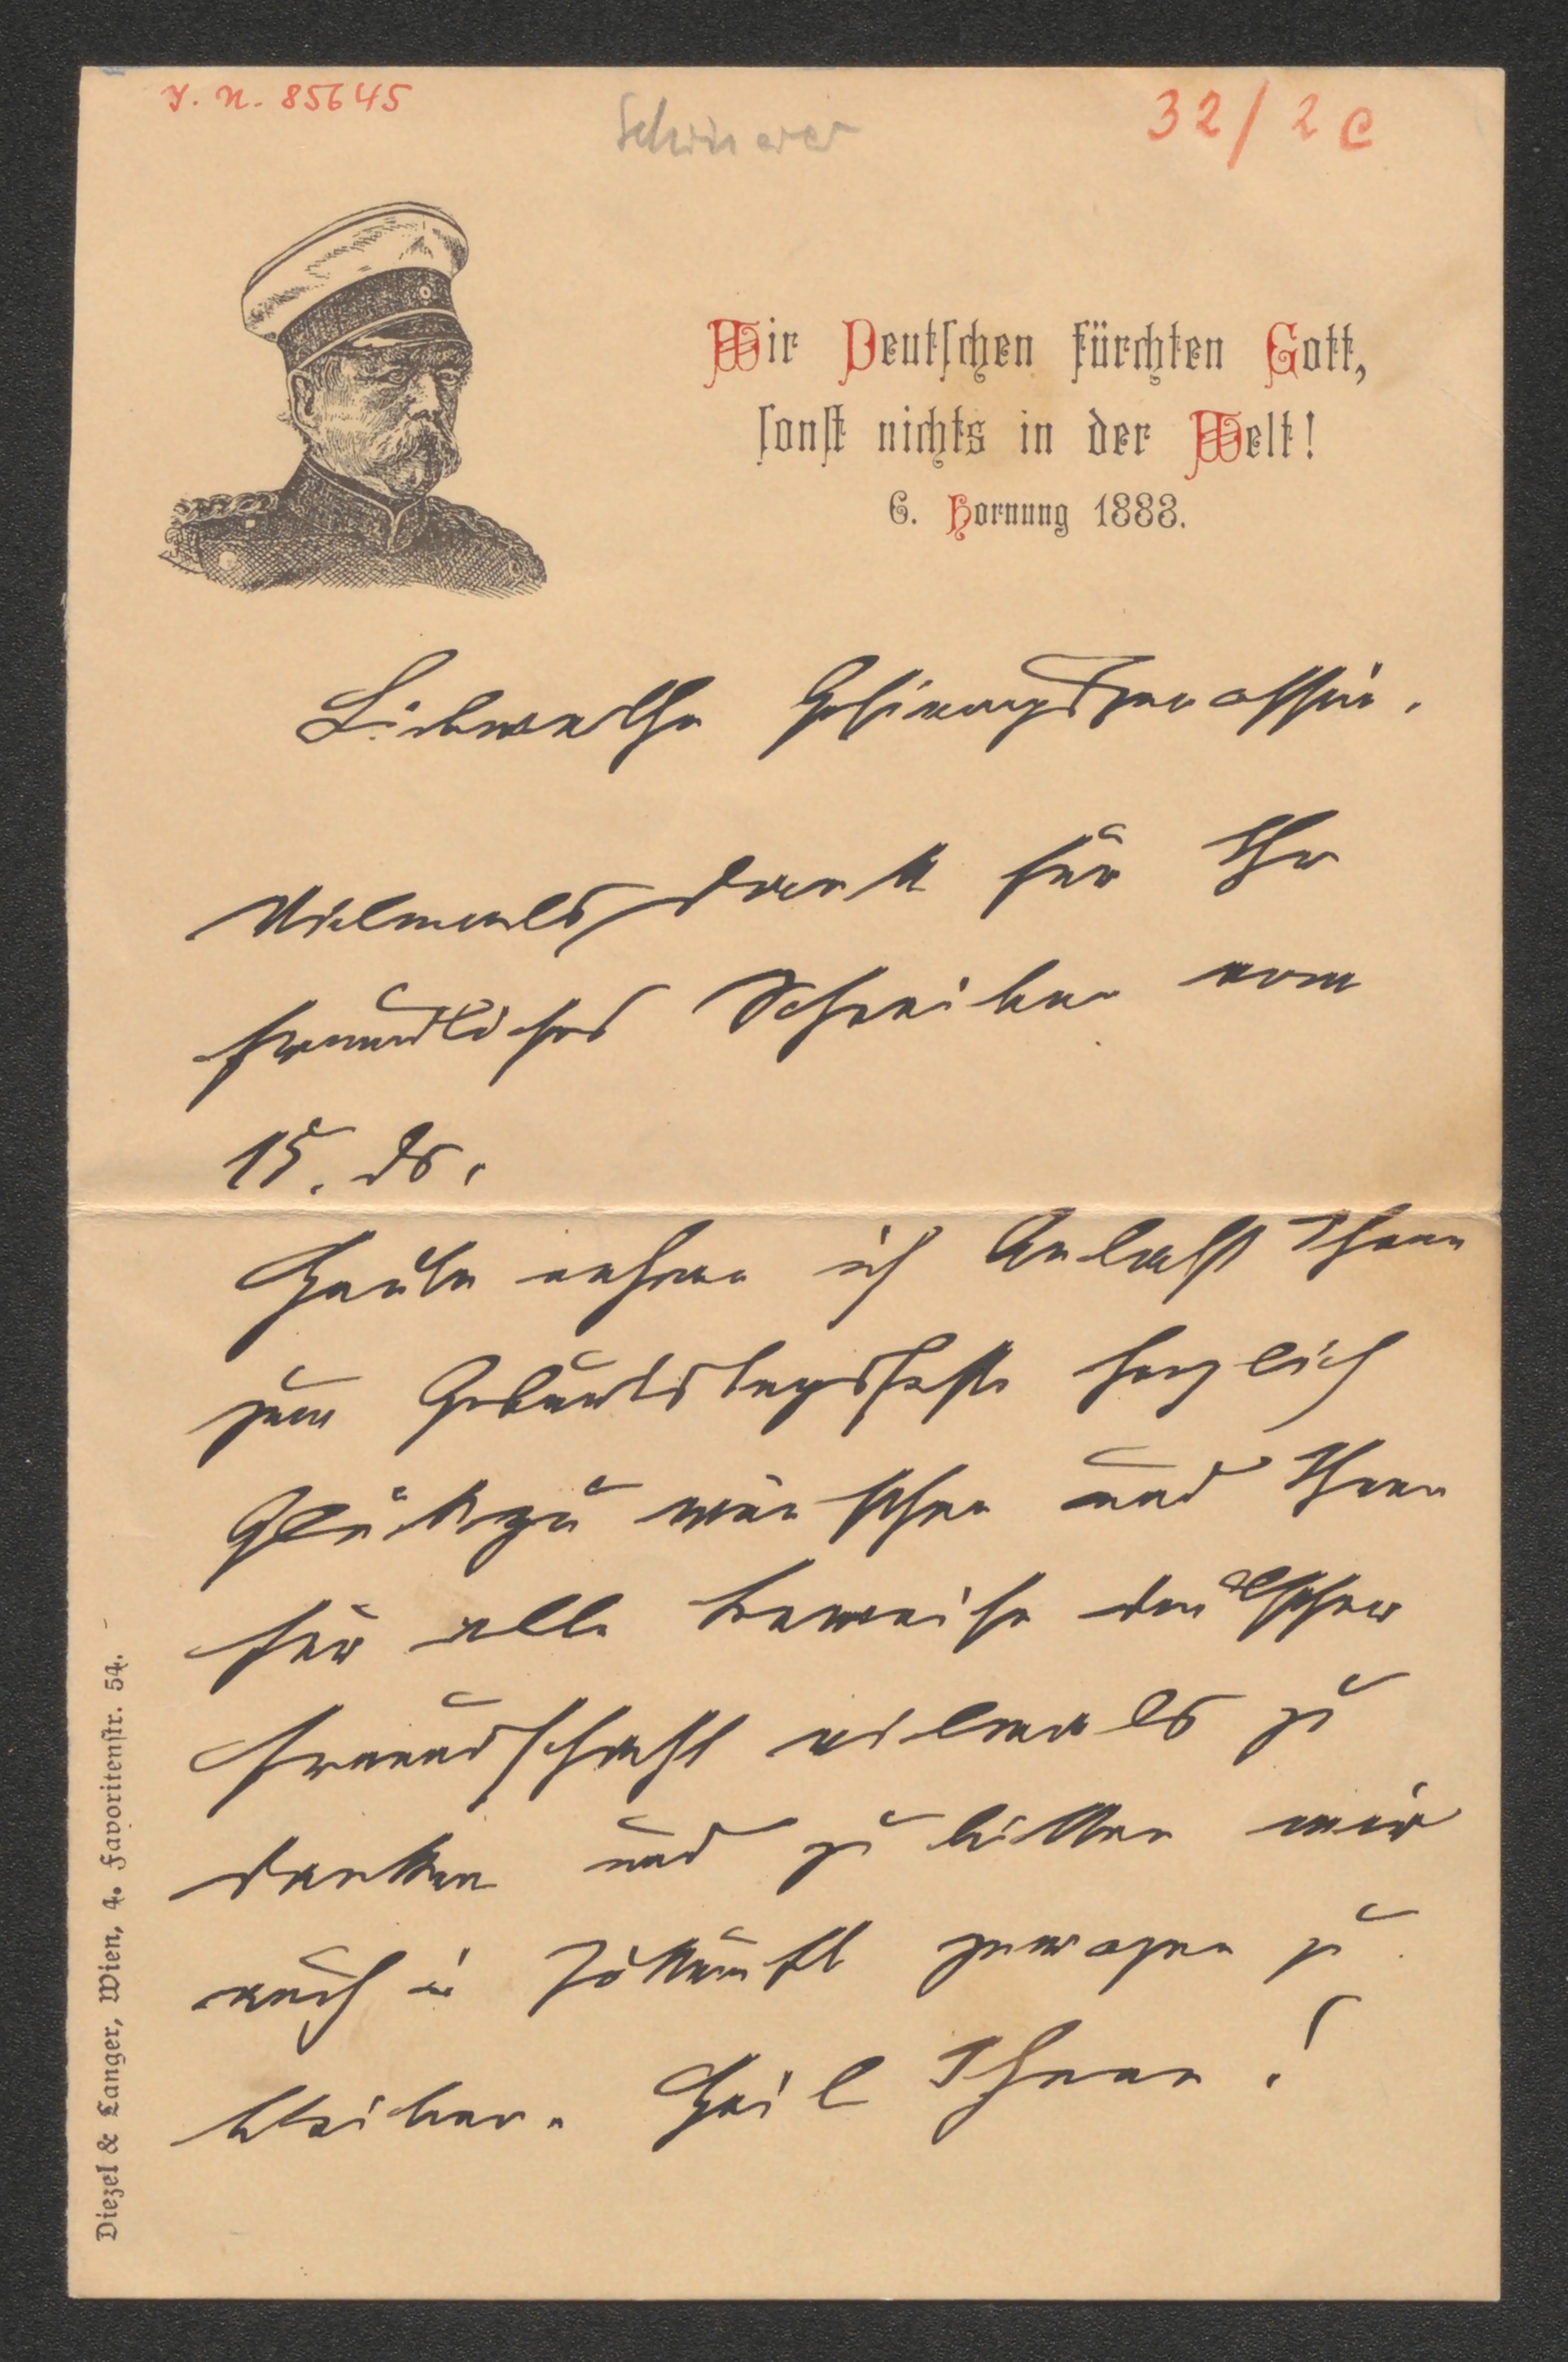 I. N. 85645
Schönerer
32/2 c
Wir Deutschen fürchten Gott,
sonst nichts in der Welt!
6. Hornung 1888.
Liebwerthe Gesinnungsgenossin.
Vielmals Dank für Ihr
freundliches Schreiben vom
15. ds.
Heute nehme ich Anlass Ihnen
zum Geburtstagsfeste herzlich
Glück zu wünschen und Ihnen
für alle Beweise deutscher
Freundschaft vielmals zu
danken und zu bitten mir
auch in Zukunft gewogen zu
bleiben. Heil Ihnen!
Diezel & Langer, Wien, 4. Favoritenstr. 54.